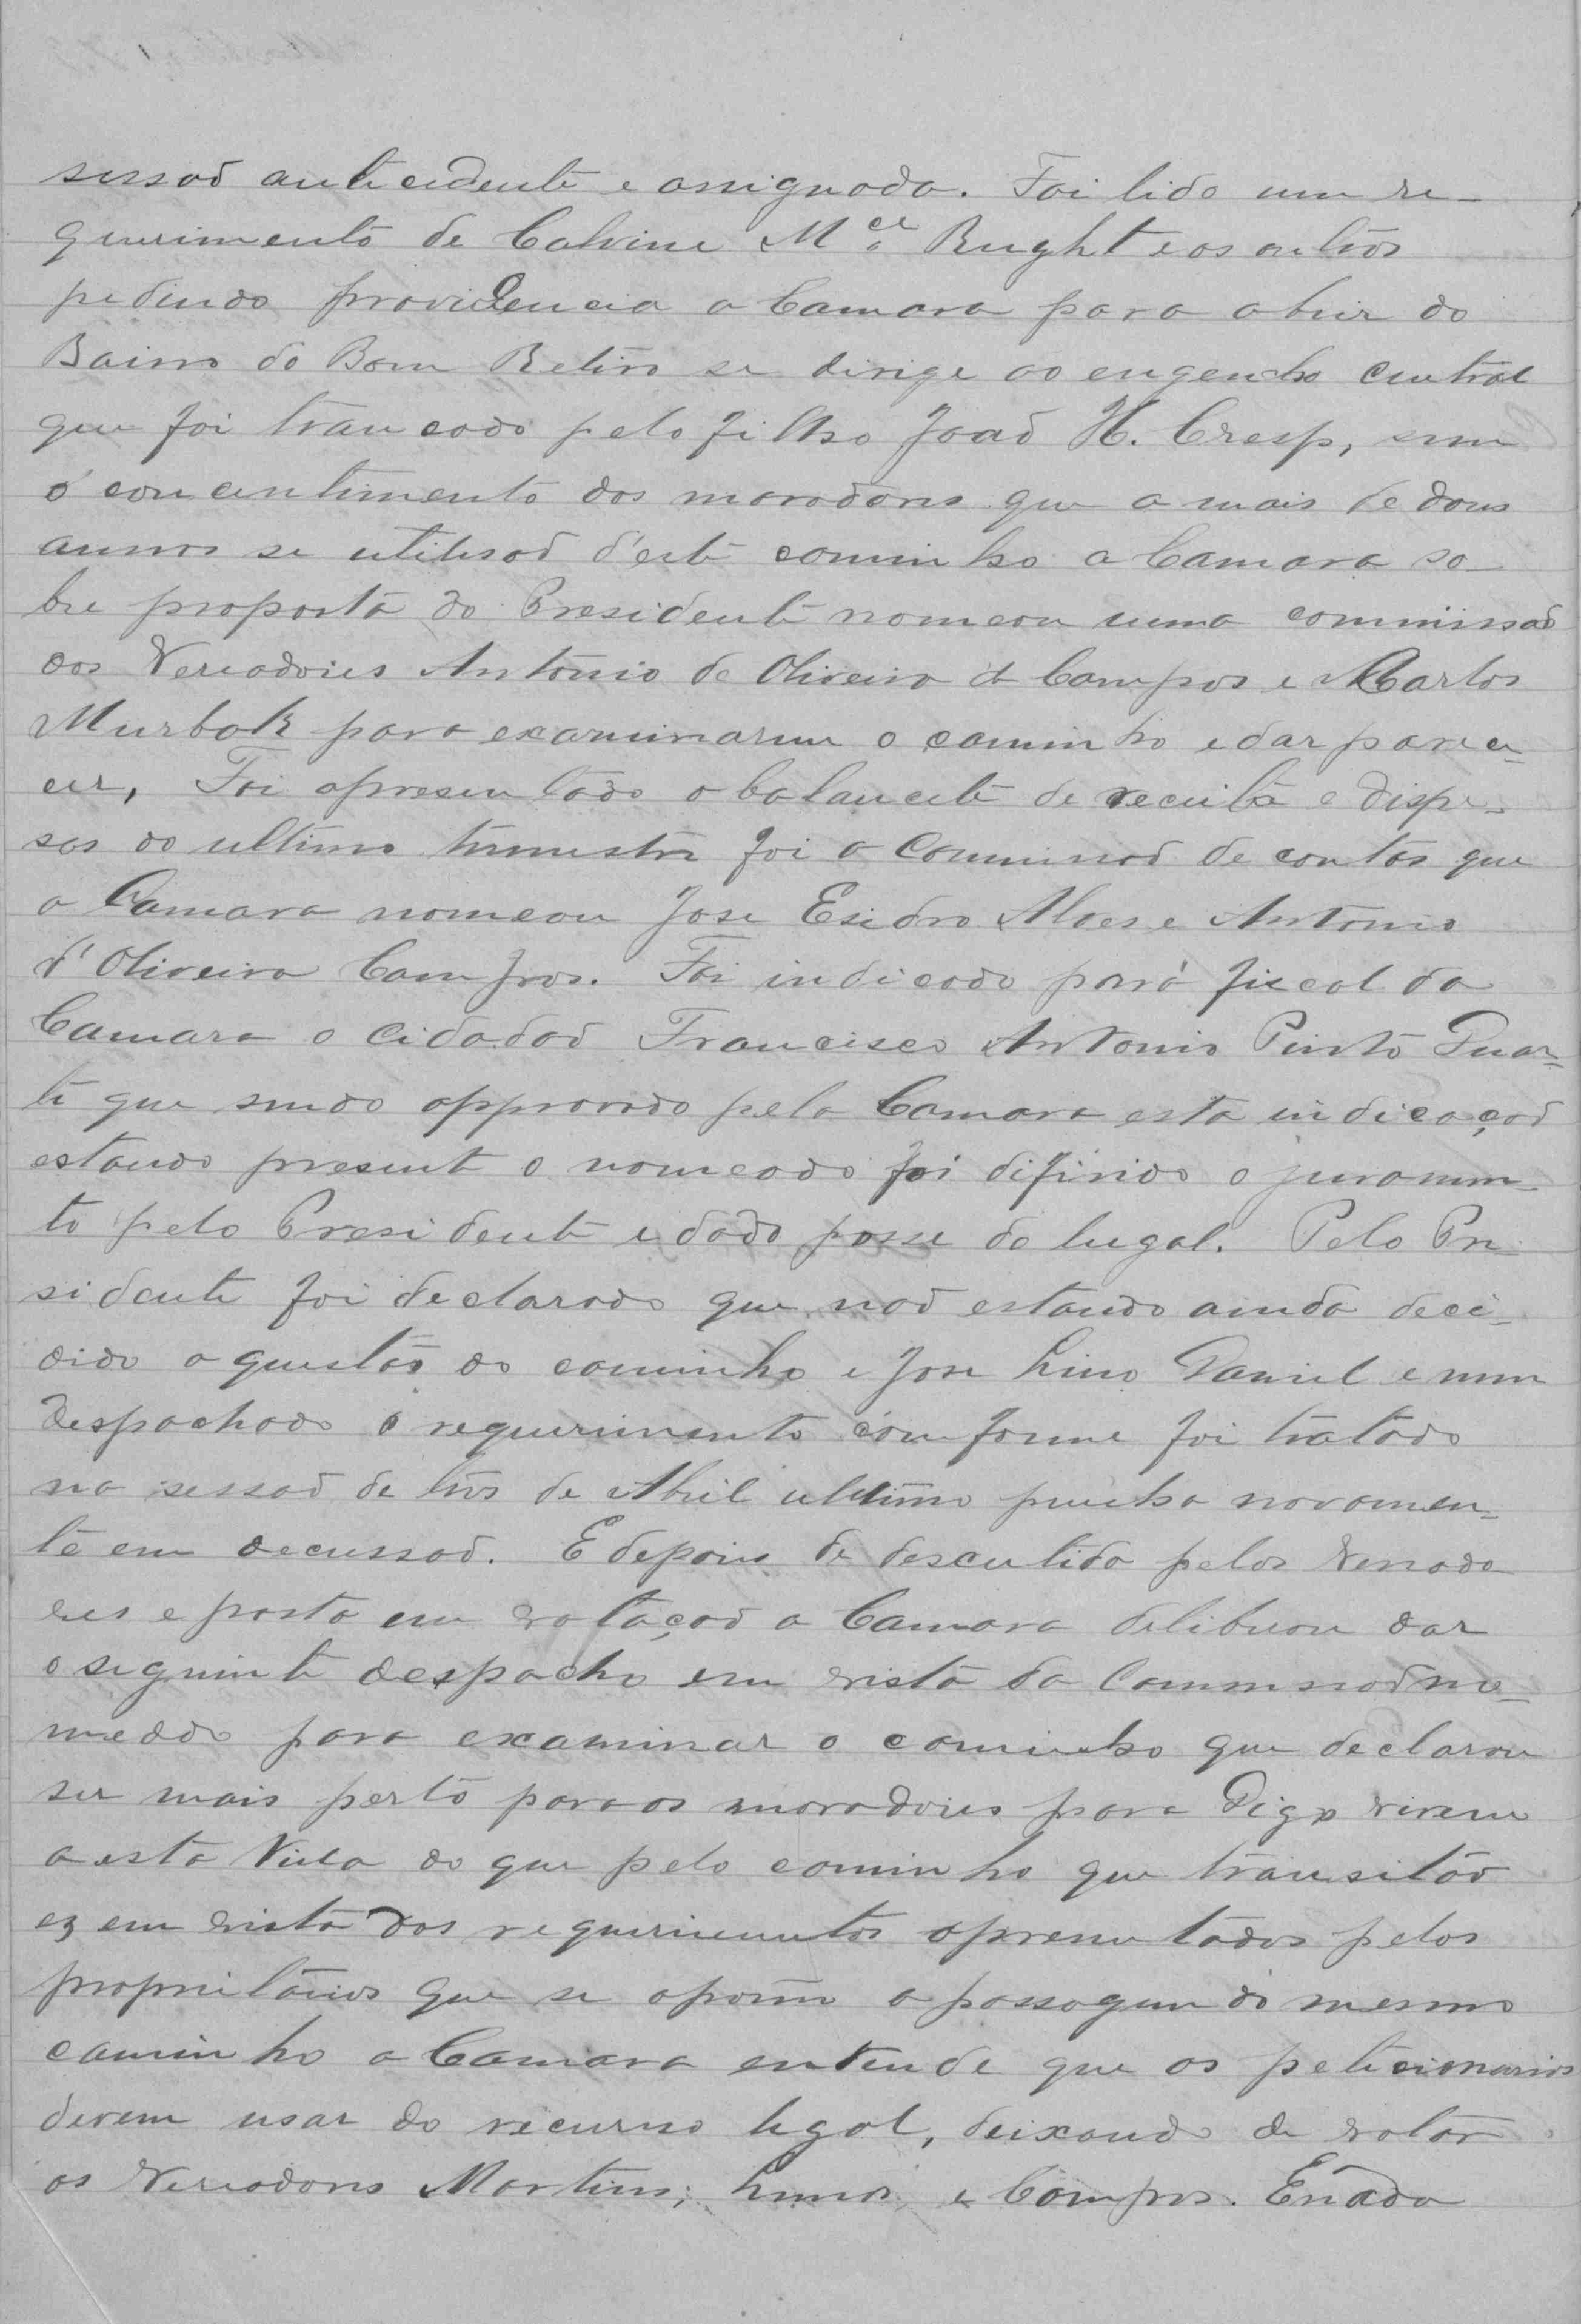 sessaõ antecedente e assignada. Foi lido um re-
querimento de Calvine M.er Knight e os outros
pedindo providencia a Camara para abrir do
Bairro do Bom Retiro se dirige ao engenho central
que foi trancado pelo filho Joaõ H. Cresp, sem
o concentimento dos moradores que a mais de dous
annos se utilisaõ d'este caminho a Camara so-
bre proposta do Presidente nomeou uma commissaõ
dos Vereadores Antonio de Oliveira & Campos e Carlos
Murbak para examinarem o caminho e dar pare-
cer, Foi apresentado o balancete de receita e dispe-
sas do ultimo trimestre foi a Commissaõ de contas que
a Camara nomeou Jose Esidro Alves e Antonio
d'Oliveira Campos. Foi indicado para fiscal da
Camara o Cidadaõ Francisco Antonio Pinto Duar-
te que sendo approvado pela Camara esta indicaçaõ
estando present o nomeado foi difirido o juramen-
to pelo Presidente e dado posse do lugal. Pelo Pre-
sidente foi declarado que naõ estando ainda deci-
dido a questaõ do caminho e Jose Lino Daniel e nem
Despachado o requerimento comforme foi tratado
na sessaõ de tres de Abril ultimo punha novamen-
te em decussaõ. E depois de descutida pelos Verado
res e posta em votaçaõ a Camara deliberou dar
o seguinte despacho em vista da Commissaõ no-
meada para examinar o caminho que declarou
ser mais perto para os moradores para Digo virem
a esta Villa do que pelo caminho que transitaõ
e em vista dos requerimentos apresentados pelos
proprietarios que se opoem a passagem do mesmo
caminho a Camara entende que os peticionarios
devem usar do recurso legal, deixando de votar
os Vereadores Martins, Lemos, e Campos. E nada